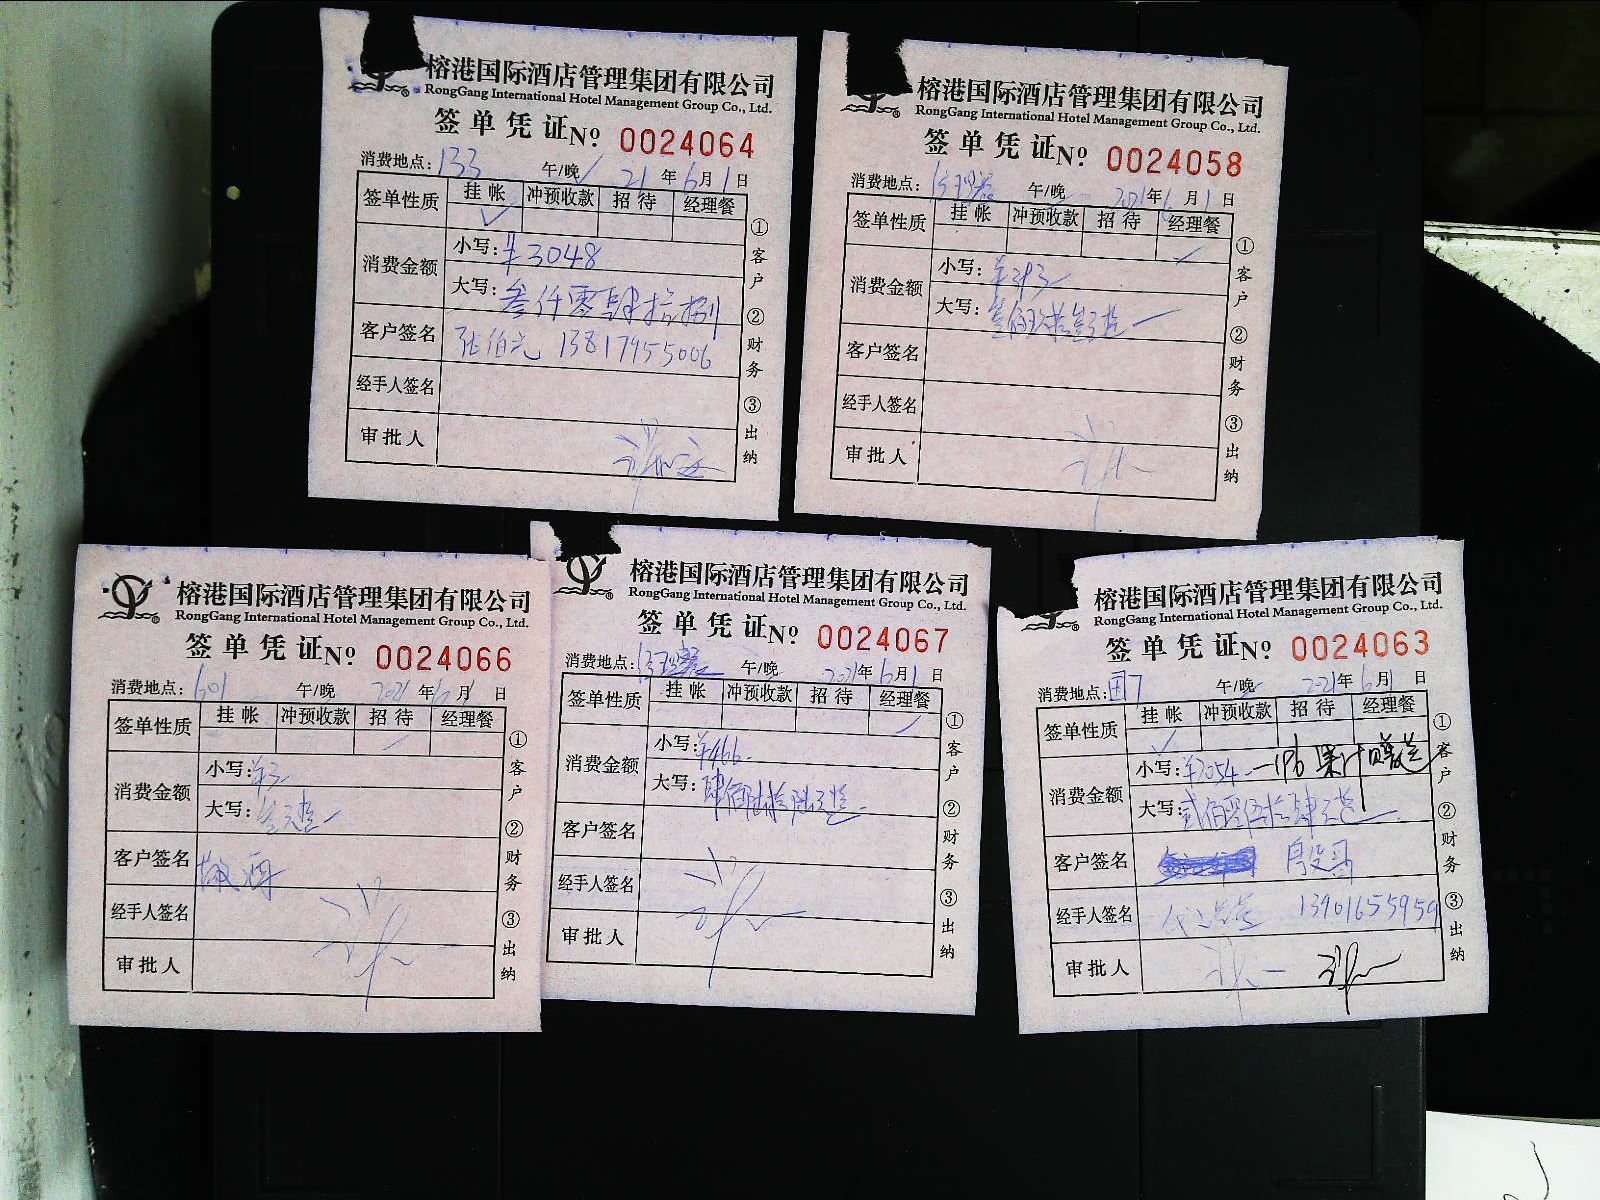 榕港国际酒店管理集团有限公司
RongGang International Hotel Management Group Co., Ltd.
签单凭证 Nº 0024064
消费地点：133 午/晚 ✓ 21年6月1日
签单性质 挂帐 冲预收款 招待 经理餐
✓
消费金额 小写：¥3048
大写：叁仟零肆拾捌
客户签名 张伯元 13817955006
经手人签名
审批人
①客户 ②财务 ③出纳
榕港国际酒店管理集团有限公司
RongGang International Hotel Management Group Co., Ltd.
签单凭证 Nº 0024058
消费地点： 午/晚 2021年6月1日
签单性质 挂帐 冲预收款 招待 经理餐
✓
消费金额 小写：¥393
大写：
客户签名
经手人签名
审批人
①客户 ②财务 ③出纳
榕港国际酒店管理集团有限公司
RongGang International Hotel Management Group Co., Ltd.
签单凭证 Nº 0024066
消费地点：601 午/晚 2021年6月1日
签单性质 挂帐 冲预收款 招待 经理餐
✓
消费金额 小写：¥3
大写：叁元整
客户签名 敬酒
经手人签名
审批人
①客户 ②财务 ③出纳
榕港国际酒店管理集团有限公司
RongGang International Hotel Management Group Co., Ltd.
签单凭证 Nº 0024067
消费地点： 午/晚 2021年6月1日
签单性质 挂帐 冲预收款 招待 经理餐
✓
消费金额 小写：¥466
大写：肆佰陆拾陆元整
客户签名
经手人签名
审批人
①客户 ②财务 ③出纳
榕港国际酒店管理集团有限公司
RongGang International Hotel Management Group Co., Ltd.
签单凭证 Nº 0024063
消费地点： 午/晚 2021年6月1日
签单性质 挂帐 冲预收款 招待 经理餐
✓
消费金额 小写：¥2054 －196 果汁赠送
大写：贰佰零伍拾肆元整
客户签名
经手人签名 13901655959
审批人
①客户 ②财务 ③出纳